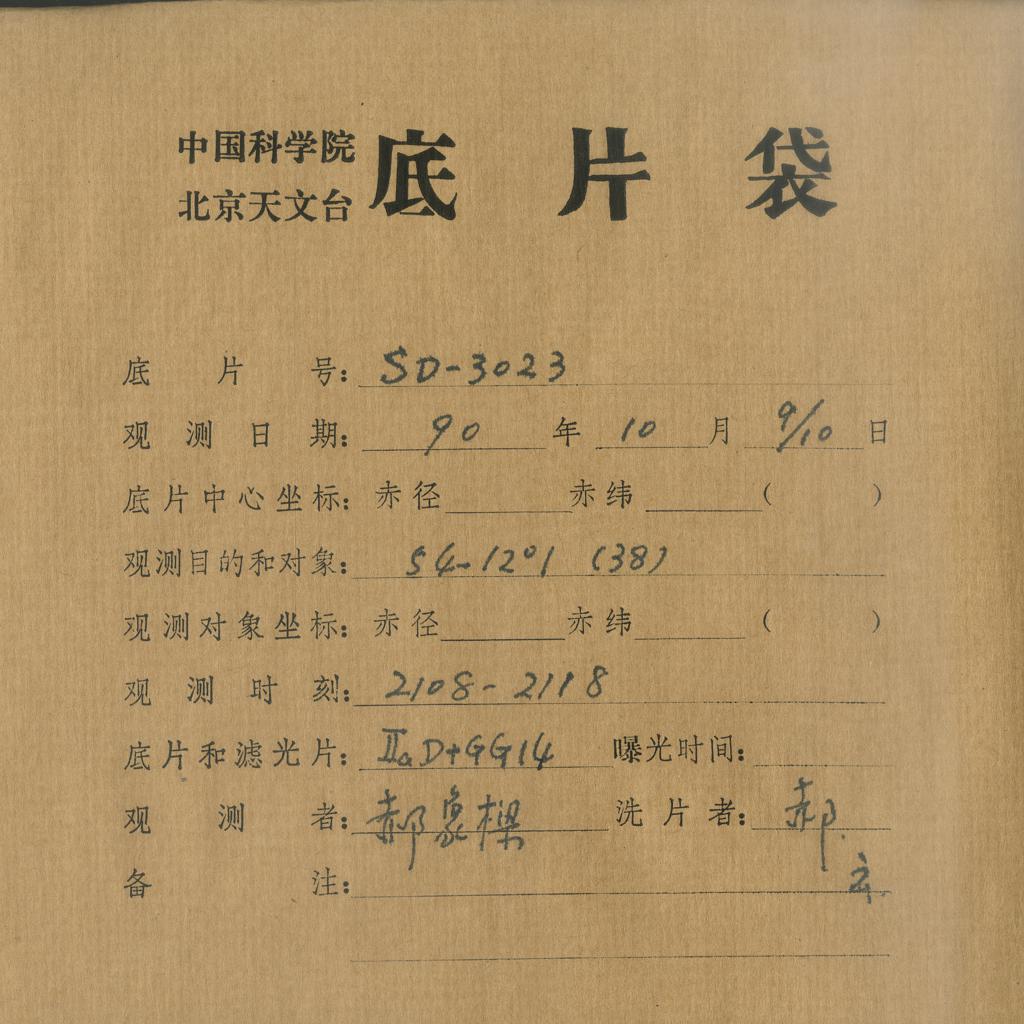 中国科学院
北京天文台
底片袋
底片号: SD-3023
观测日期: 90 年 10 月 9/10 日
底片中心坐标: 赤径 赤纬 ( )
观测目的和对象: S4-1201 (38)
观测对象坐标: 赤径 赤纬 ( )
观测时刻: 2108-2118
底片和滤光片: IIaD+GG14 曝光时间:
观测者: 郝象樑 洗片者: 郝.
备注: